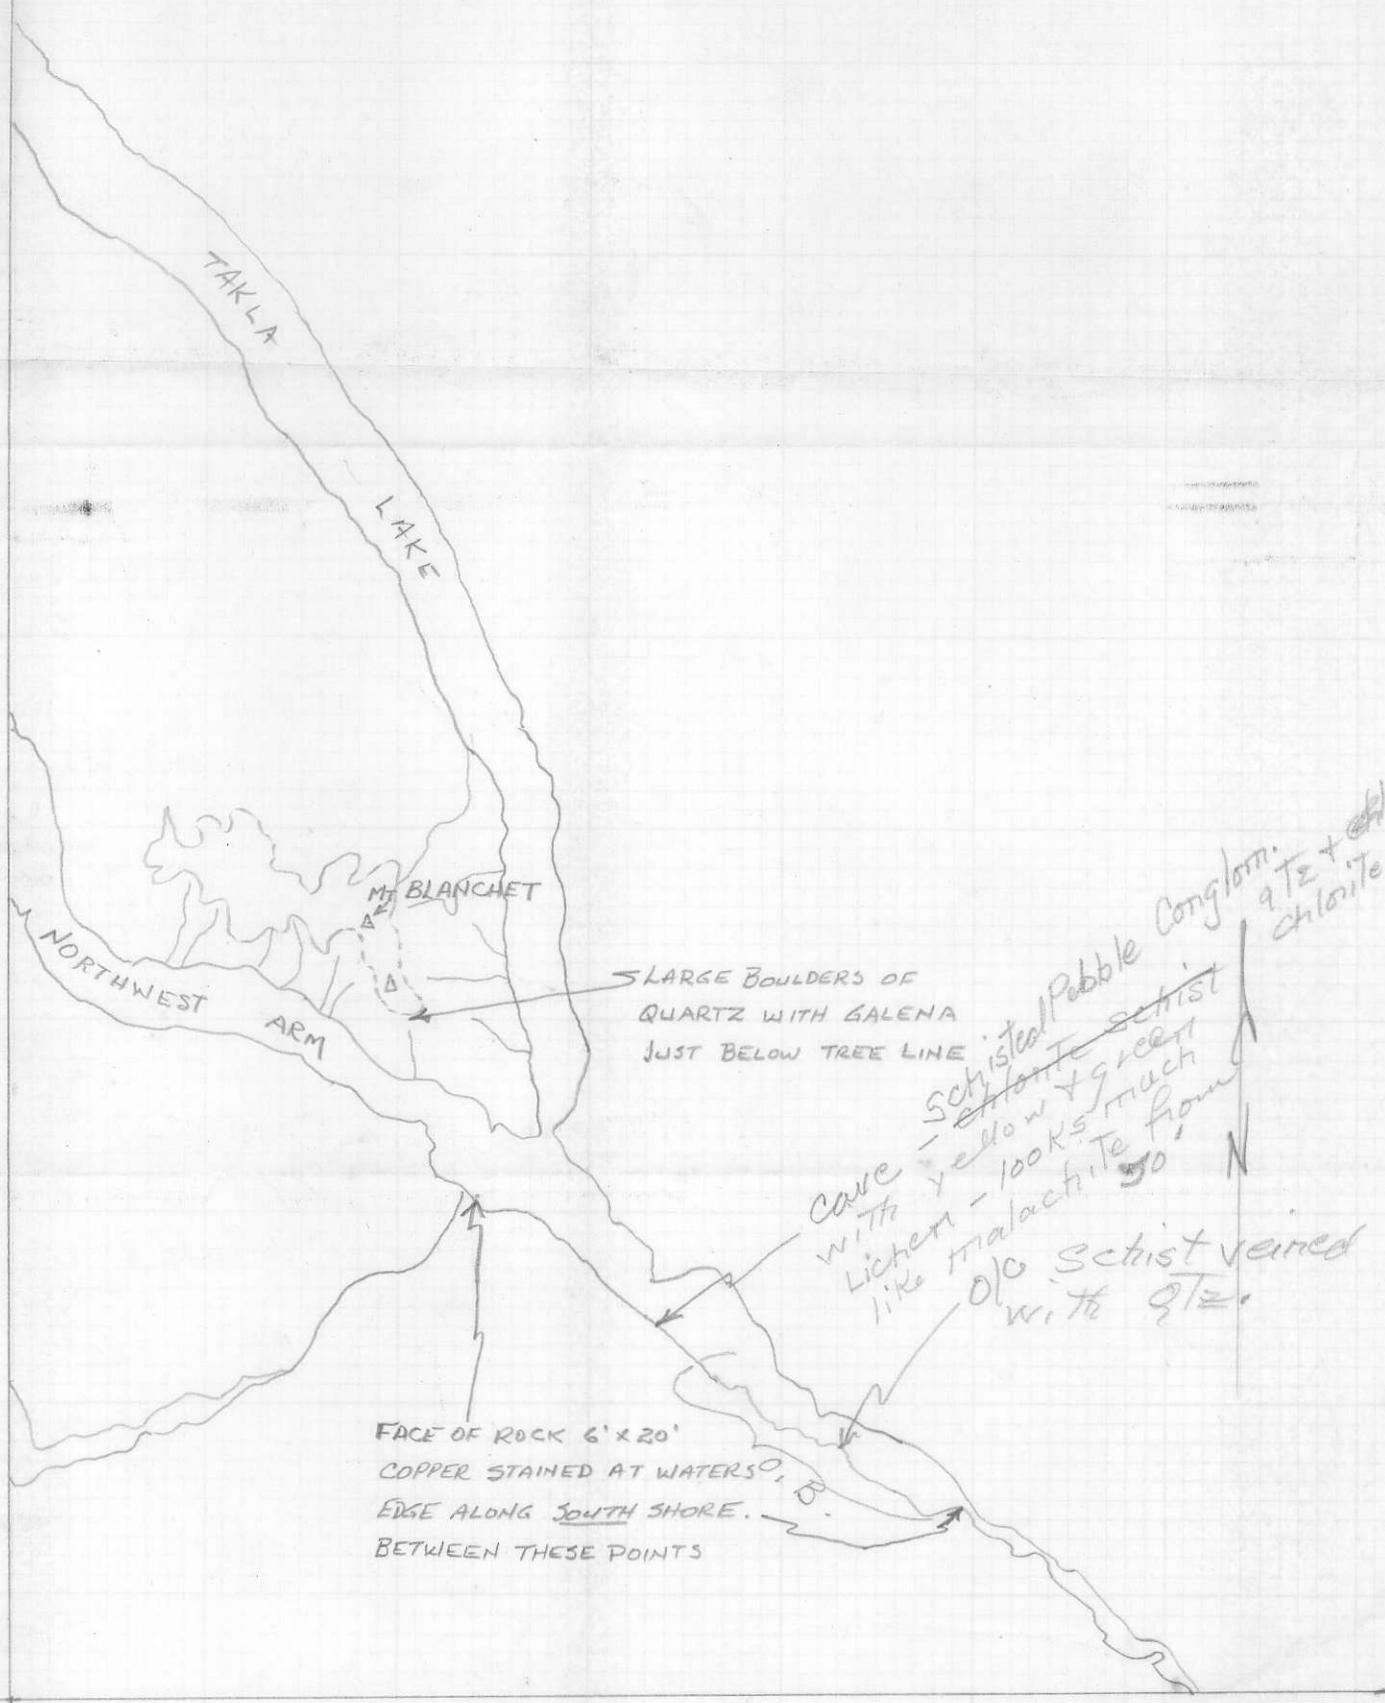 TAKLA
LAKE
MT BLANCHET
NORTHWEST
ARM
LARGE BOULDERS OF
QUARTZ WITH GALENA
JUST BELOW TREE LINE
Schisted Pebble Conglom.
qTz +
chlorite
cave - chlorite schist
with yellow + green
Lichen - looks much
like malachite from
50'
N
o/c schist veined
with QTz.
FACE OF ROCK 6' X 20'
COPPER STAINED AT WATERS
EDGE ALONG SOUTH SHORE.
BETWEEN THESE POINTS
O.B.